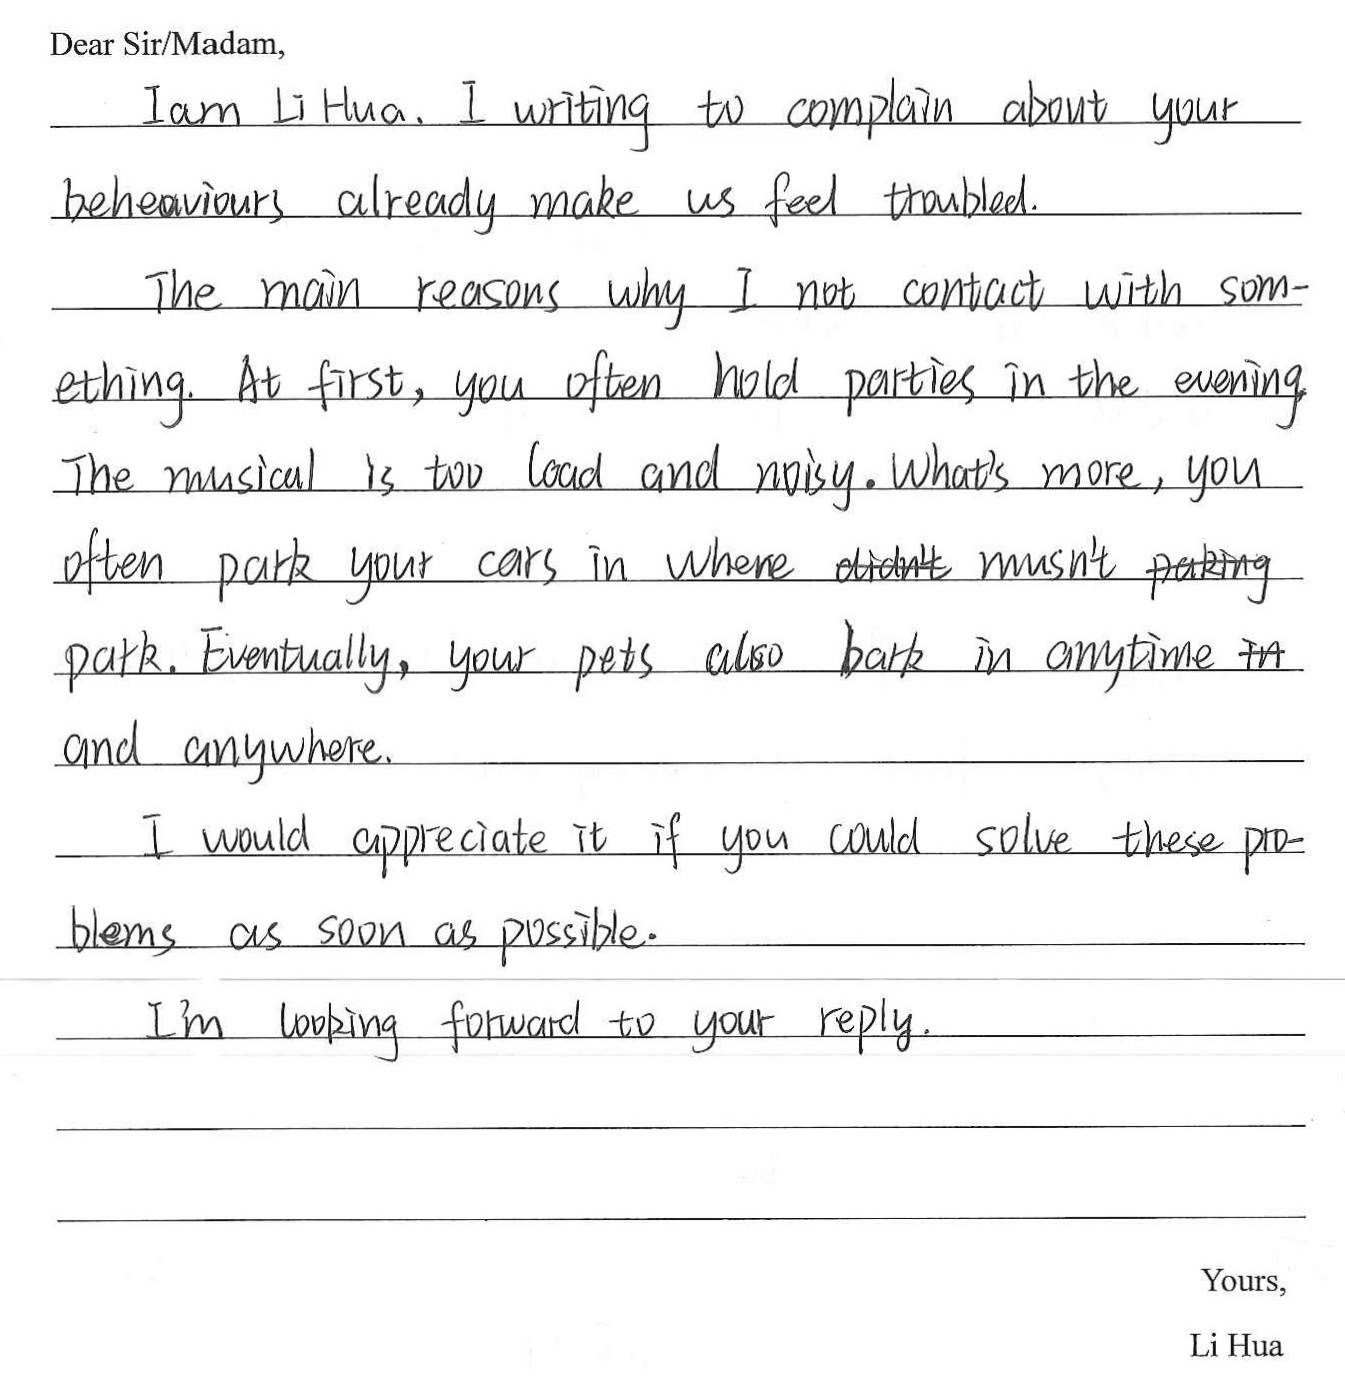 Dear Sir/Madam,
I am Li Hua. I writing to complain about your
beheaviours already make us feel troubled.
The main reasons why I not contact with som-
ething. At first, you often hold parties in the evening.
The musical is too load and noisy. What's more, you
often park your cars in where didn't musn't paking
park. Eventually, your pets also bark in anytime in
and anywhere.
I would appreciate it if you could solve these pro-
blems as soon as possible.
I'm looking forward to your reply.
Yours,
Li Hua